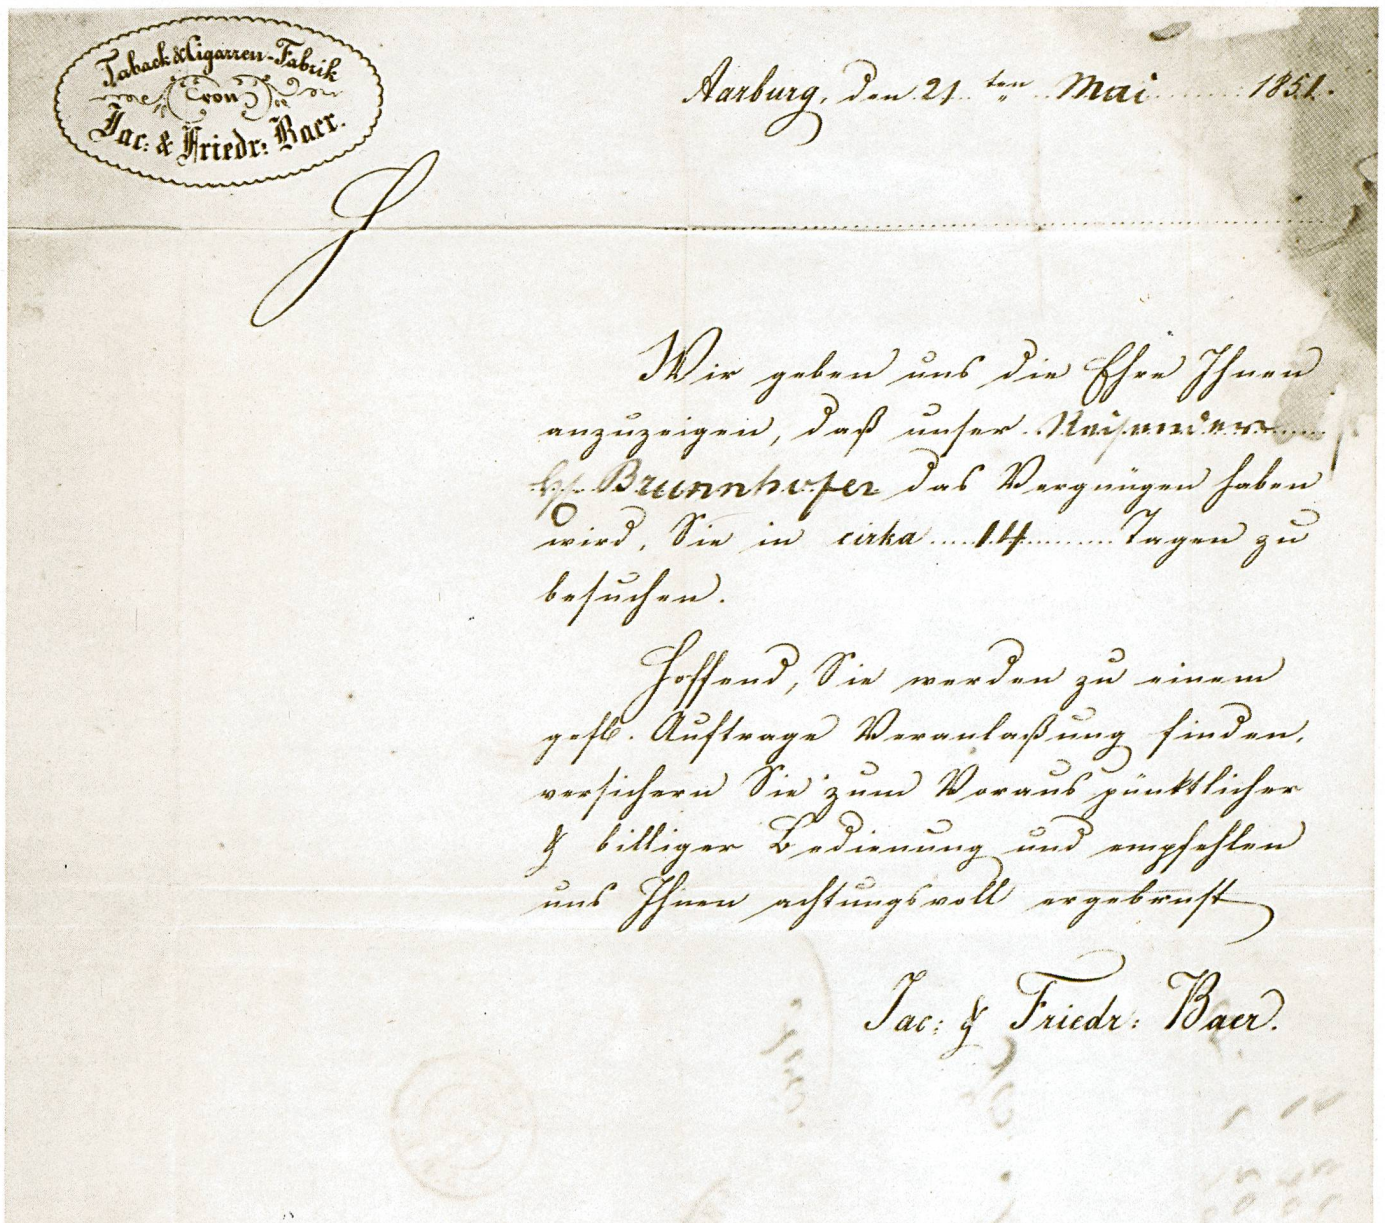 Taback & Cigarren-Fabrik
von
Jac: & Friedr: Baer.
Aarburg, den 21ten Mai 1851.
Wir geben uns die Ehre Ihnen
anzuzeigen, daß unser Reisender
Hr. Brunnhofer das Vergnügen haben
wird, Sie in cirka 14 Tagen zu
besuchen.
Hoffend, Sie werden zu einem
gefl. Auftrage Veranlaßung finden,
versichern Sie zum Voraus pünktlicher
& billiger Bedienung und empfehlen
uns Ihnen achtungsvoll ergebenst
Jac: & Friedr: Baer.